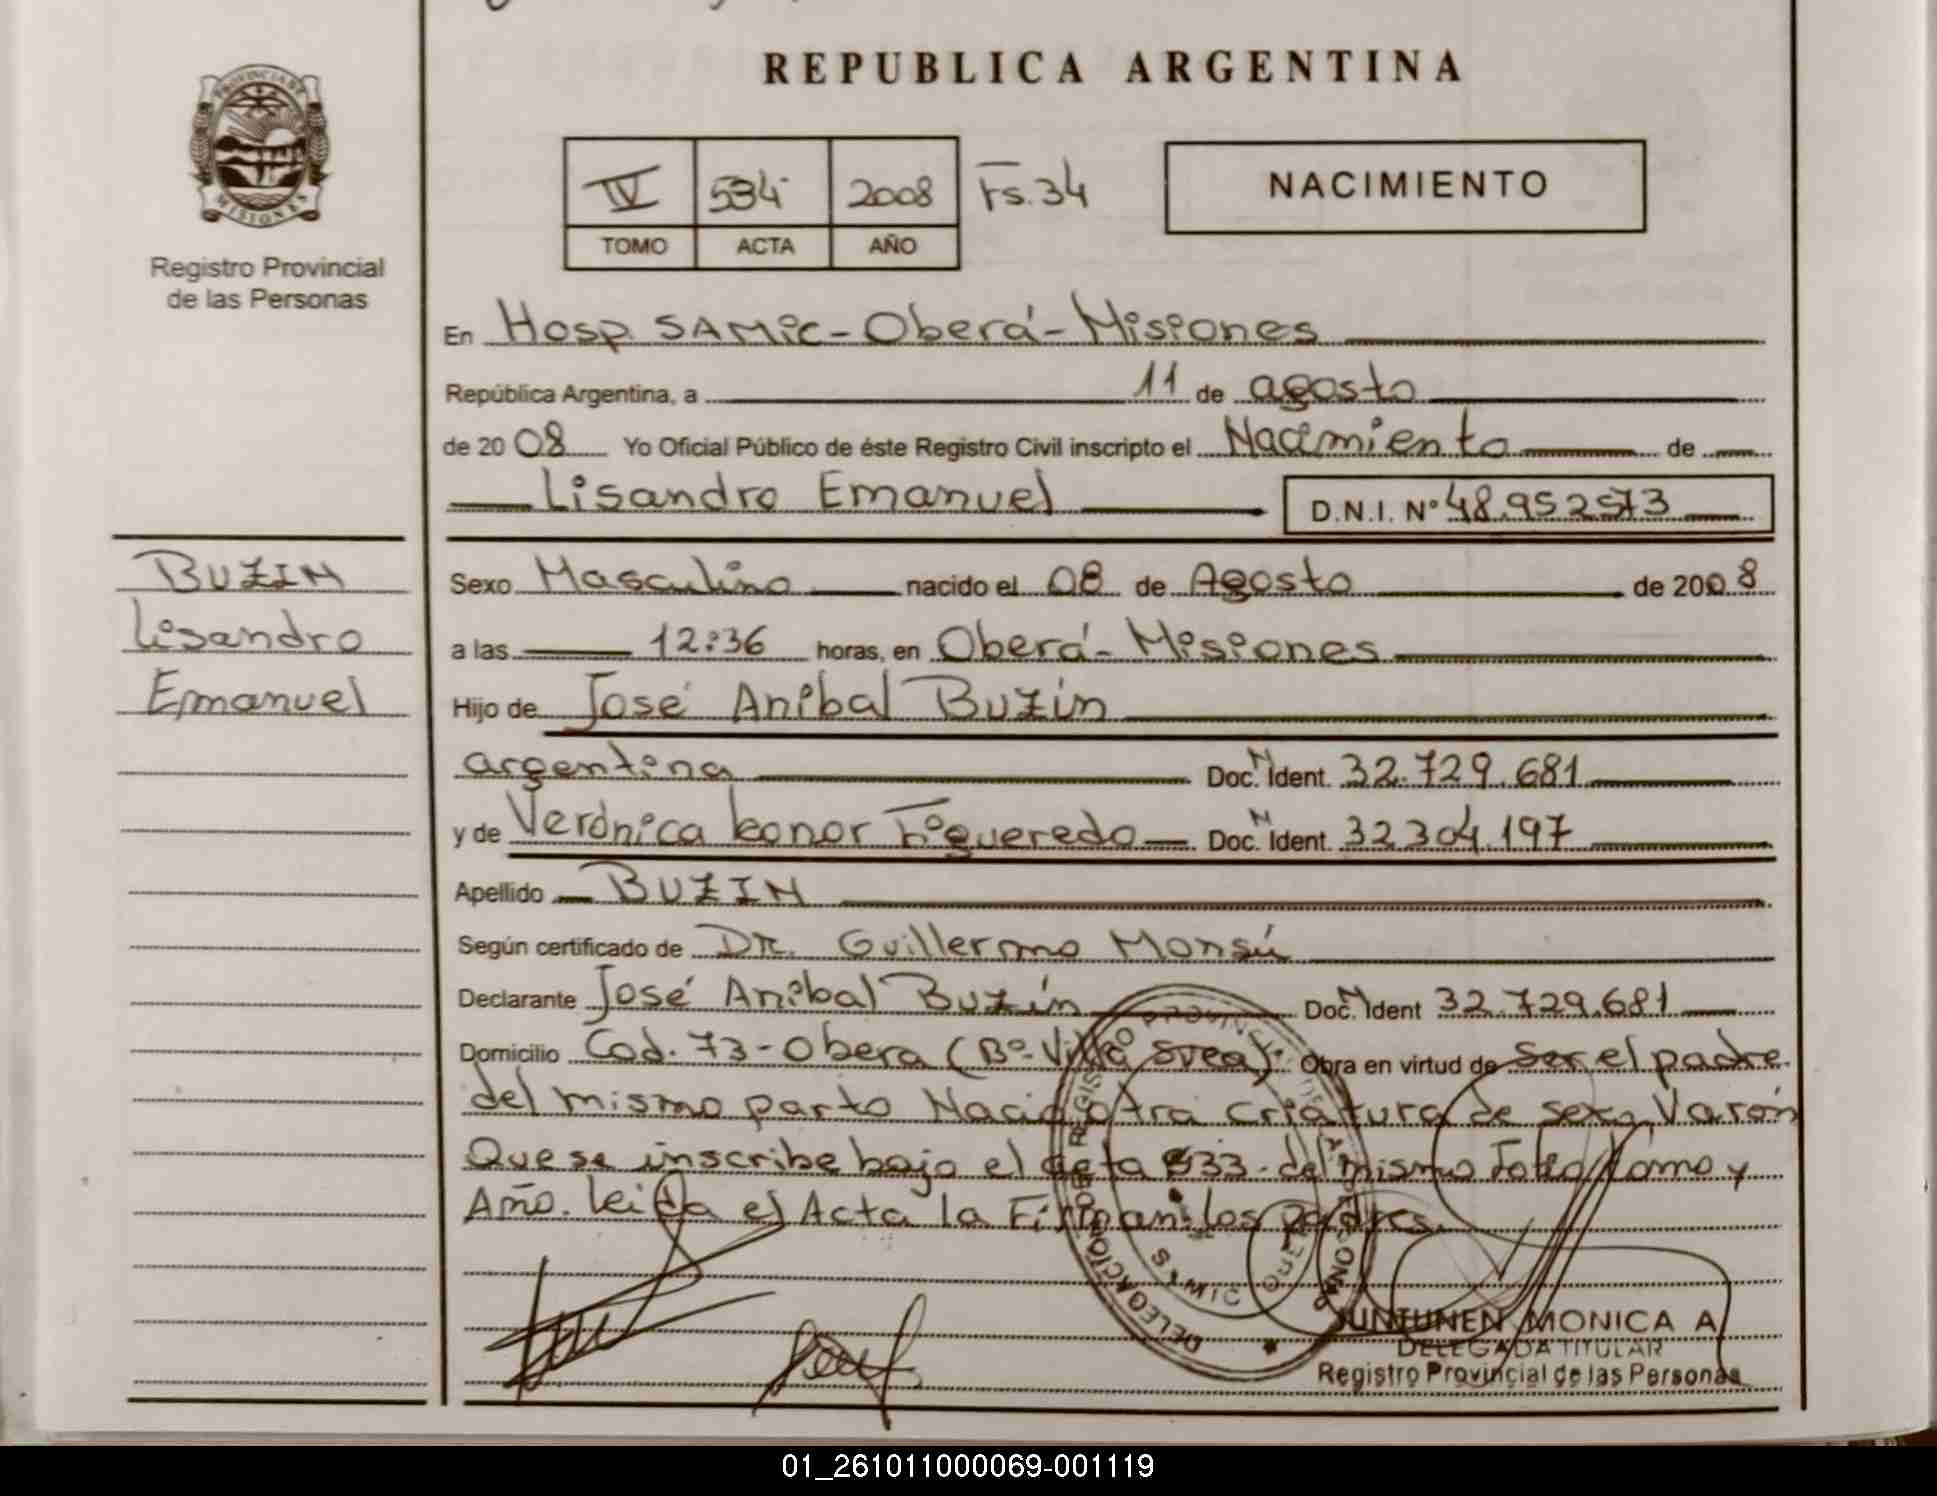 REPUBLICA ARGENTINA
PROVINCIA DE
MISIONES
Registro Provincial
de las Personas
IV 534 2008 Fs. 34
TOMO ACTA AÑO
NACIMIENTO
En Hosp SAMic - Oberá - Misiones
República Argentina, a 11 de agosto
de 20 08 Yo Oficial Público de éste Registro Civil inscripto el Nacimiento de
Lisandro Emanuel D.N.I. Nº 48.952573
BUZIN
Lisandro
Emanuel
Sexo Masculino nacido el 08 de Agosto de 2008
a las 12:36 horas, en Oberá - Misiones
Hijo de José Anibal Buzín
argentina Doc. N Ident. 32.729.681
y de Verónica Leonor Figueredo Doc. N Ident. 32304.197
Apellido BUZIN
Según certificado de DR. Guillermo Monsú
Declarante José Anibal Buzín Doc. N Ident 32.729.681
Domicilio Cod. 73 - Obera (Bº. Villa Svea). Obra en virtud de Ser el padre.
del mismo parto Nació otra criatura de sexo Varón
Que se inscribe bajo el acta 533 - del mismo Folio Tomo y
Año. Leida el Acta la Firman los padres.
SAMIC
JUNTUNEN MONICA A
DELEGADA TITULAR
Registro Provincial de las Personas
01_261011000069-001119